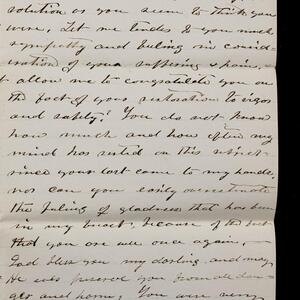 solution as you seem to think you
were. Let me tender to you much
sympathy and feeling in consid-
eration of your suffering & pains,
t allow me to congratulate you on
the fact of your restoration to vigor
and safety. You do not know
how much and how often my
mind has rested on this subject
since your last came to my hands,
nor can you easily overestimate
the feeling of gladness that has been
in my heart, because of the fact
that you are well once again,
God bless you my darling and may
He ever preserve you from all dan-
ger and harm. You were very